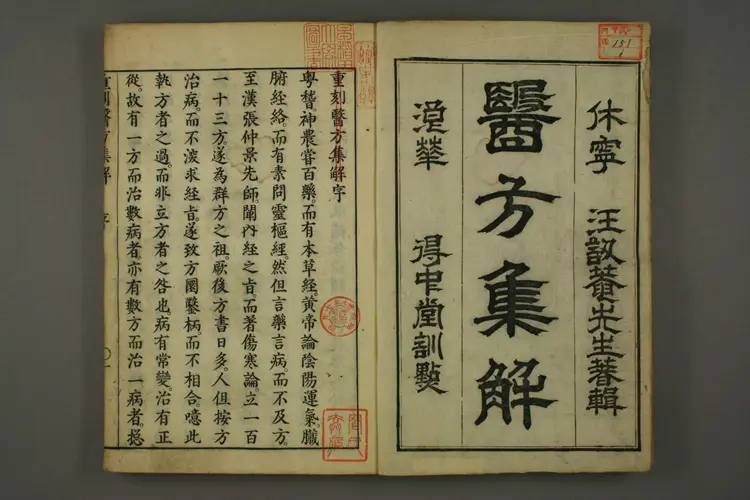 151
休寧 汪訒菴先生著輯
醫方集解
浪華 得中堂訓點
重刻醫方集解字
粤稽神農嘗百藥。而有本草經。黃帝論陰陽運氣。臟
腑經絡。而有素問靈樞經。然但言藥言病。而不及方。
至漢張仲景先師。闡内經之旨。而著傷寒論。立一百
一十三方。遂為群方之祖。厥後方書日多。人但按方
治病。而不深求經旨。遂致方圜鑿枘。而不相合。噫此
執方者之過。而非立方者之咎也。病有常變。治有正
從。故有一方而治數病者。亦有數方而治一病者。揔
重刻醫方集解